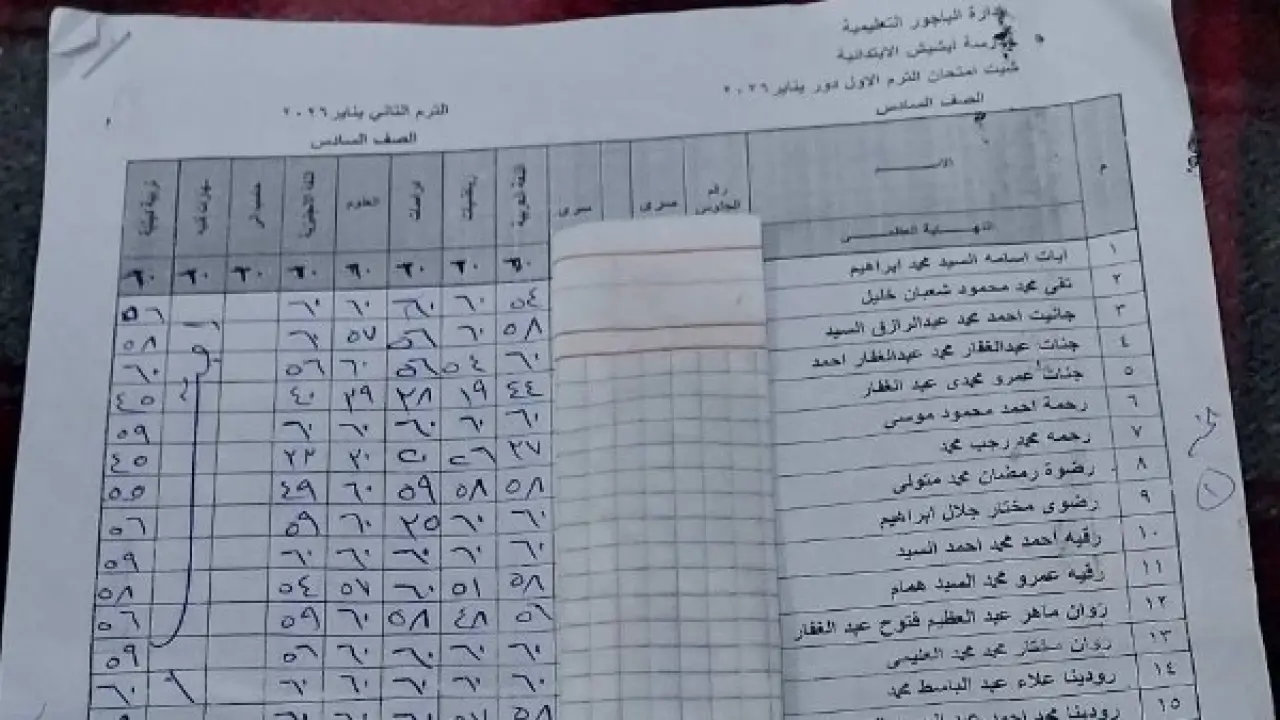 إدارة الباجور التعليمية
مدرسة ابشيش الابتدائية
شيت امتحان الترم الاول دور يناير ٢٠٢٦
الصف السادس
الترم الثاني يناير ٢٠٢٦
الصف السادس
م الاســـم رقم الجلوس سرى سرى اللغة العربية رياضيات دراسات العلوم اللغة الانجليزية تربية دينية
النهـــاية العظمـــى ٦٠ ٦٠ ٦٠ ٦٠ ٦٠ ٢٠ ٢٠ ٦٠
١ ايات اسامه السيد محمد ابراهيم ٥٤ ٦٠ ٦٠ ٦٠ ٦٠ ٥٦
٢ تقي محمد محمود شعبان خليل ٥٨ ٦٠ ٥٦ ٥٧ ٦٠ ٥٨
٣ جانيت احمد محمد عبدالرازق السيد ٦٠ ٥٤ ٥٦ ٦٠ ٥٦ ٦٠
٤ جنات عبدالغفار محمد عبدالغفار احمد ٤٤ ١٩ ٣٨ ٣٩ ٤٠ ٤٥
٥ جنات عمرو مجدى عبد الغفار ٦٠ ٦٠ ٦٠ ٦٠ ٦٠ ٥٩
٦ رحمة احمد محمود موسى ٣٧ ٢٦ ٢٠ ٣٠ ٣٣ ٤٥
٧ رحمه محمد رجب محمد ٥٨ ٥٨ ٥٩ ٦٠ ٤٩ ٥٥
٨ رضوة رمضان محمد متولى ٦٠ ٦٠ ٣٥ ٦٠ ٥٩ ٥٦
٩ رضوى مختار جلال ابراهيم ٦٠ ٦٠ ٦٠ ٦٠ ٦٠ ٥٩
١٠ رقيه احمد محمد احمد السيد ٥٨ ٥١ ٦٠ ٥٧ ٥٤ ٥٨
١١ رقيه عمرو محمد السيد همام ٥٦ ٤٨ ٥٨ ٦٠ ٥٩ ٥٦
١٢ روان ماهر عبد العظيم فتوح عبد الغفار ٦٠ ٦٠ ٦٠ ٦٠ ٥٦ ٥٩
١٣ روان مختار محمد محمد العليمى ٦٠ ٦٠ ٦٠ ٦٠ ٦٠ ٦٠
١٤ رودينا علاء عبد الباسط محمد ٥٨ ٥٧
١٥ رودينا محمد احمد عبد